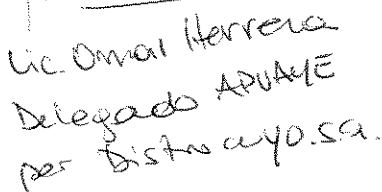 Lic. Omar Herrera
Delegado APUAYE
per Distrocuyo.s.a.